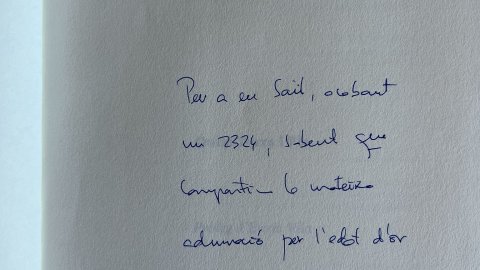 Per a en Said, acabant
un 2324, sabent que
compartim la mateixa
admiració per l'edat d'or